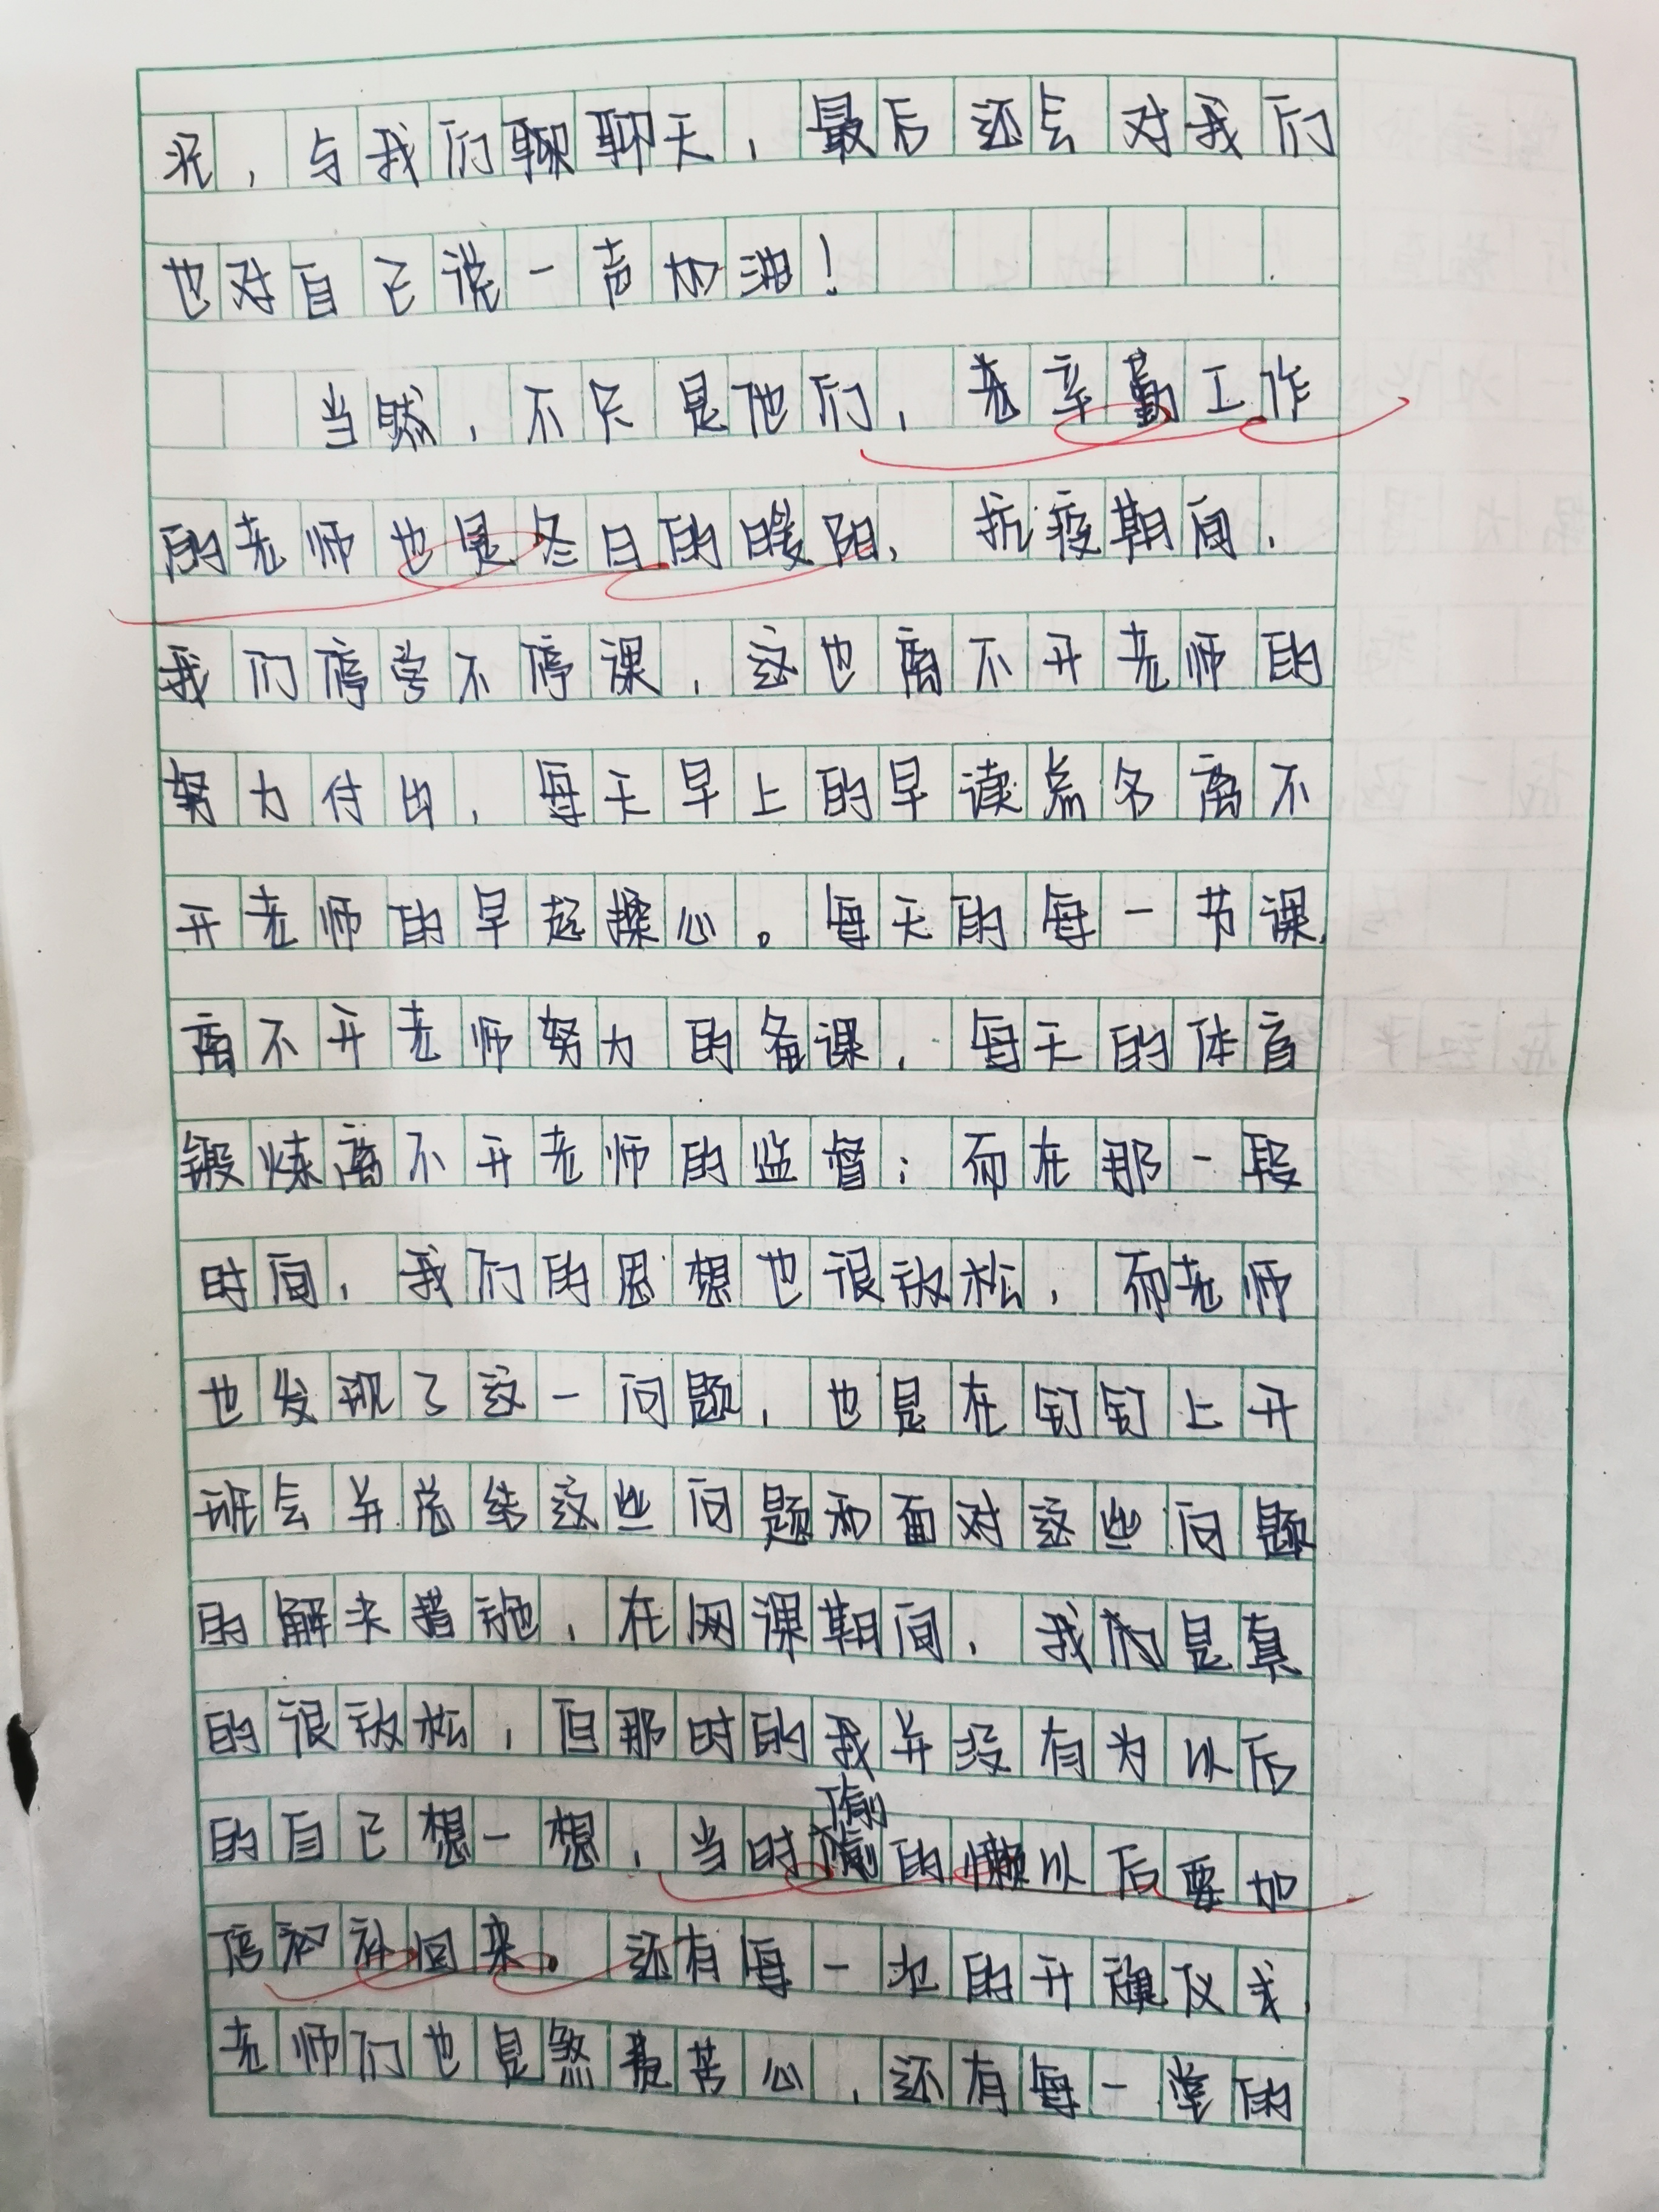 况，与我们聊聊天，最后还会对我们
也对自己说一声加油！
当然，不只是他们，老辛勤工作
的老师也是冬日的暖阳，抗疫期间，
我们停学不停课，这也离不开老师的
努力付出，每天早上的早读点名离不
开老师的早起操心。每天的每一节课，
离不开老师努力的备课，每天的体育
锻炼离不开老师的监督；而在那一段
时间，我们的思想也很放松，而老师
也发现了这一问题，也是在钉钉上开
班会并总结这些问题和面对这些问题
的解决措施，在网课期间，我们是真
的很放松，但那时的我并没有为以后
的自己想一想，当时偷的懒以后要加
倍补回来。还有每一次的开旗仪式，
老师们也是煞费苦心，还有每一堂的